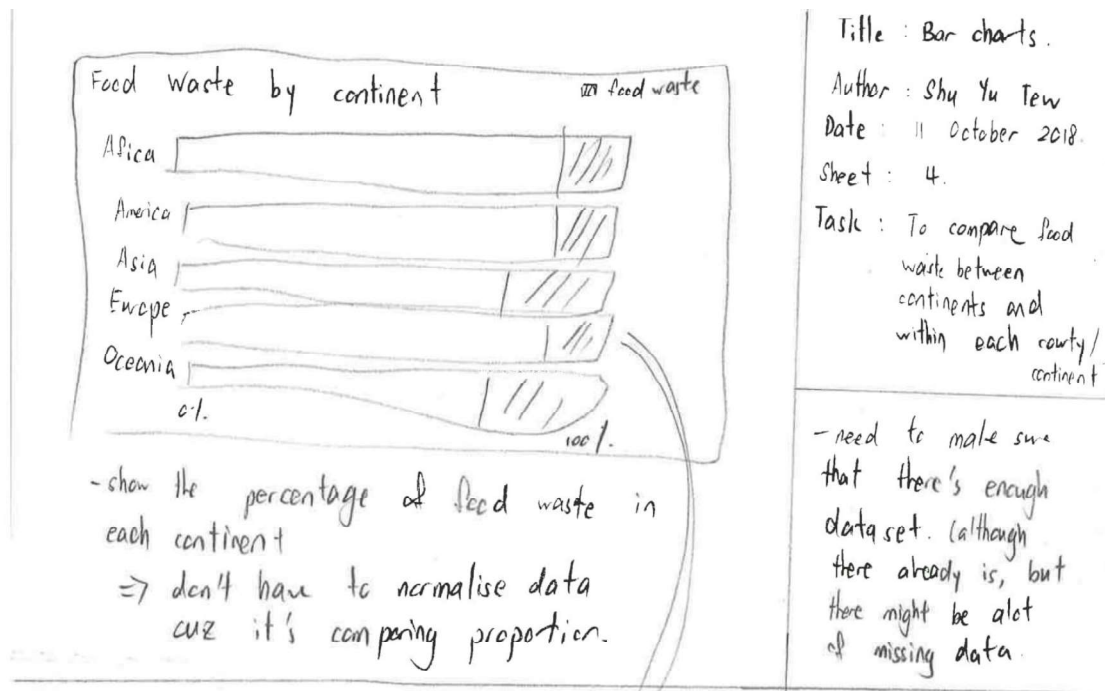 Food Waste by continent
food waste
Africa
America
Asia
Europe
Oceania
0%.
100%.
- show the percentage of food waste in
each continent
=> don't have to normalise data
cuz it's comparing proportion.
Title : Bar charts.
Author : Shu Yu Tew
Date : 11 October 2018.
Sheet : 4.
Task : To compare food
waste between
continents and
within each county/
continent
- need to make sure
that there's enough
dataset. (although
there already is, but
there might be alot
of missing data.